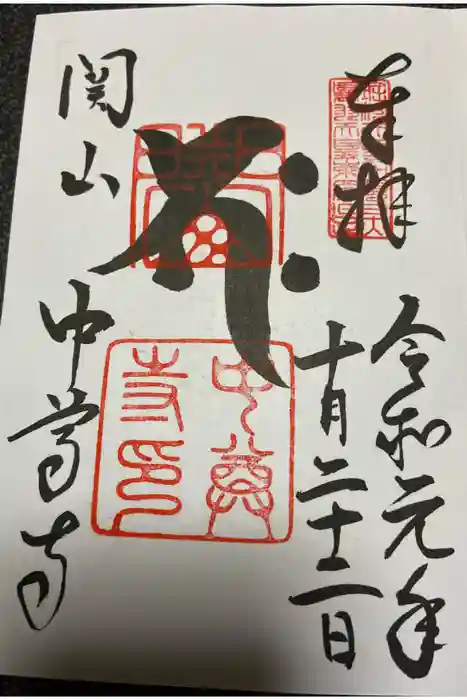 奉拝
令和元年
十月二十二日
関山
中尊寺
中尊
寺印